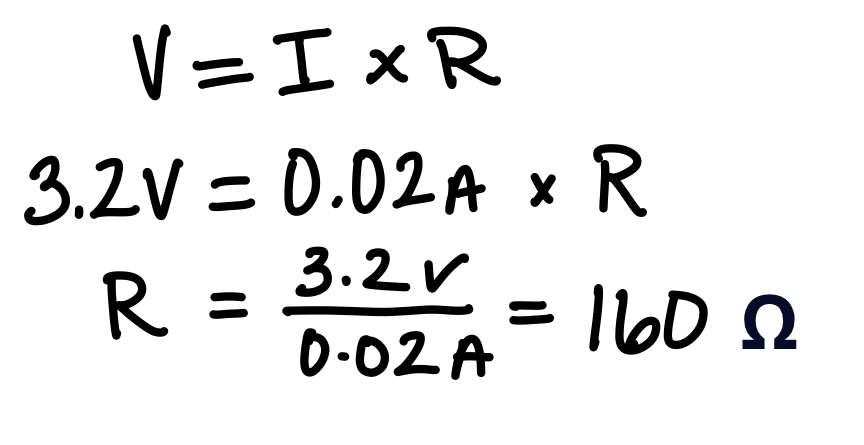 V = I × R
3.2V = 0.02A × R
R = 3.2V / 0.02A = 160 Ω